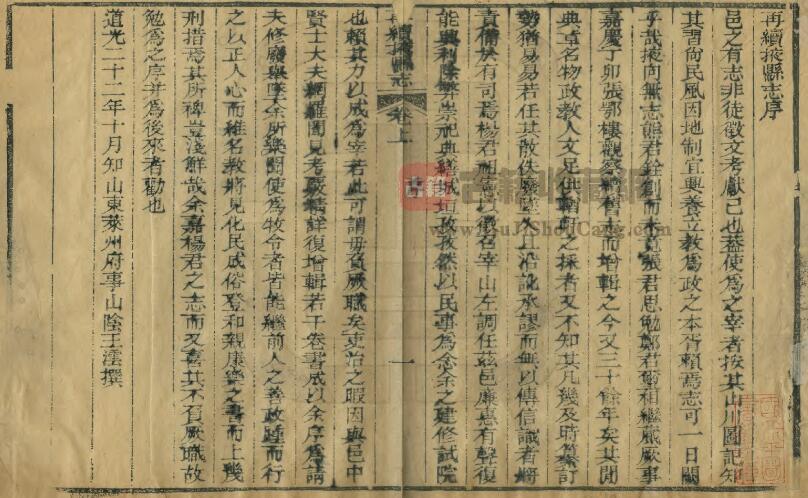 再續掖縣志序
邑之有志非徒徵文考獻已也葢使為之宰者按其山川圖記知
其習尚民風因地制宜興養立教為政之本胥賴焉志可一日闕
乎哉掖向無志館君銓創而未竟張君思勉鄭君相繼職厥事
嘉慶丁卯張鄂樓觀察續舊志而增輯之今又三十餘年矣其間
典章名物政教人文足供輶軒之採者又不知其凡幾及時纂訂
勢猶易易若任其散佚廢墜久且沿訛承謬而無以傳信識者將
責備於有司焉楊君祖憲以徵召宰山左調任茲邑廉惠有聲復
能興利除弊崇祀典繕城垣政孜然以民事為念余之建修試院
也賴其力以成為宰若此可謂毋負厥職矣吏治之暇因與邑中
賢士大夫網羅聞見考覈精詳復增輯若干卷書成以余序為請
夫修廢舉墜余所樂聞使為牧令者皆能繼前人之善政踵而行
之以正人心而維名教將見化民成俗登和親康樂之書而上幾
刑措焉其所裨豈淺鮮哉余嘉楊君之志而又喜其不負厥職故
勉為之序并為後來者勸也
道光二十二年十月知山東萊州府事山陰王澐撰
再續掖縣志
卷上
一
古籍
www.GuJiShouCang.com